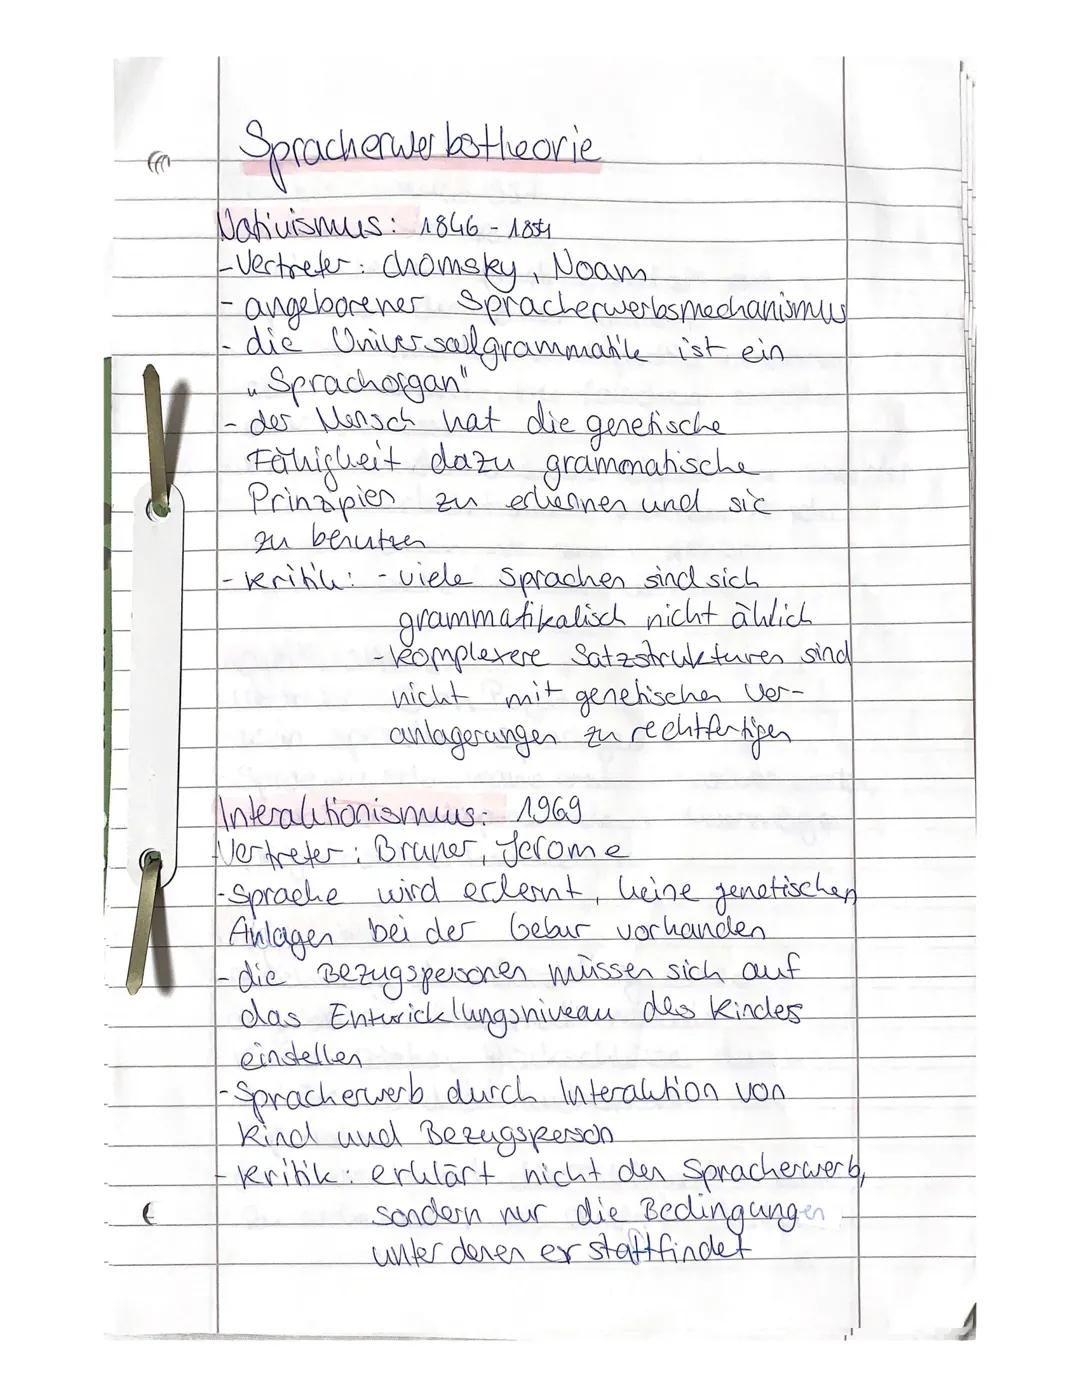 Spracherwerbstheorie
Nativismus: 1846 - 1854
- Vertreter: Chomsky, Noam
- angeborener Spracherwerbsmechanismus
- die Universalgrammatik ist ein
„Sprachorgan"
- der Mensch hat die genetische
Fähigkeit dazu grammatische
Prinzipien zu erkennen und sie
zu benutzen
- Kritik: - viele Sprachen sind sich
grammatikalisch nicht ählich
- komplexere Satzstrukturen sind
nicht mit genetischen Ver-
anlagerungen zu rechtfertigen
Interaktionismus: 1969
- Vertreter: Bruner, Jerome
- Sprache wird erlernt, keine genetischen
Anlagen bei der Gebur vorhanden
- die Bezugspersonen müssen sich auf
das Entwicklungsniveau des Kindes
einstellen
- Spracherwerb durch Interaktion von
Kind und Bezugsperson
- Kritik: erklärt nicht den Spracherwerb,
sondern nur die Bedingungen
unter denen er stattfindet